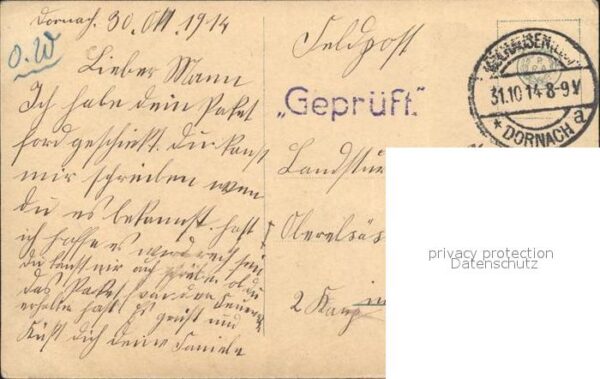 Dornach. 30. Okt. 1914
O.W
Lieber Mann
Ich habe dein Paket
fordgeschickt. Du kanst
mir schreiben wen
du es bekomst. hast
ich hoffe es wird recht sein
du kanst mir auch schreiben ob du
das Paket von der
erhalten hast Es grüst und
Küst dich deine Famiele
Feldpost
„Geprüft."
MÜLHAUSEN
31.10 14 8-9V
* DORNACH a
Landstur
Oberelsäs
2 Komp
privacy protection
Datenschutz